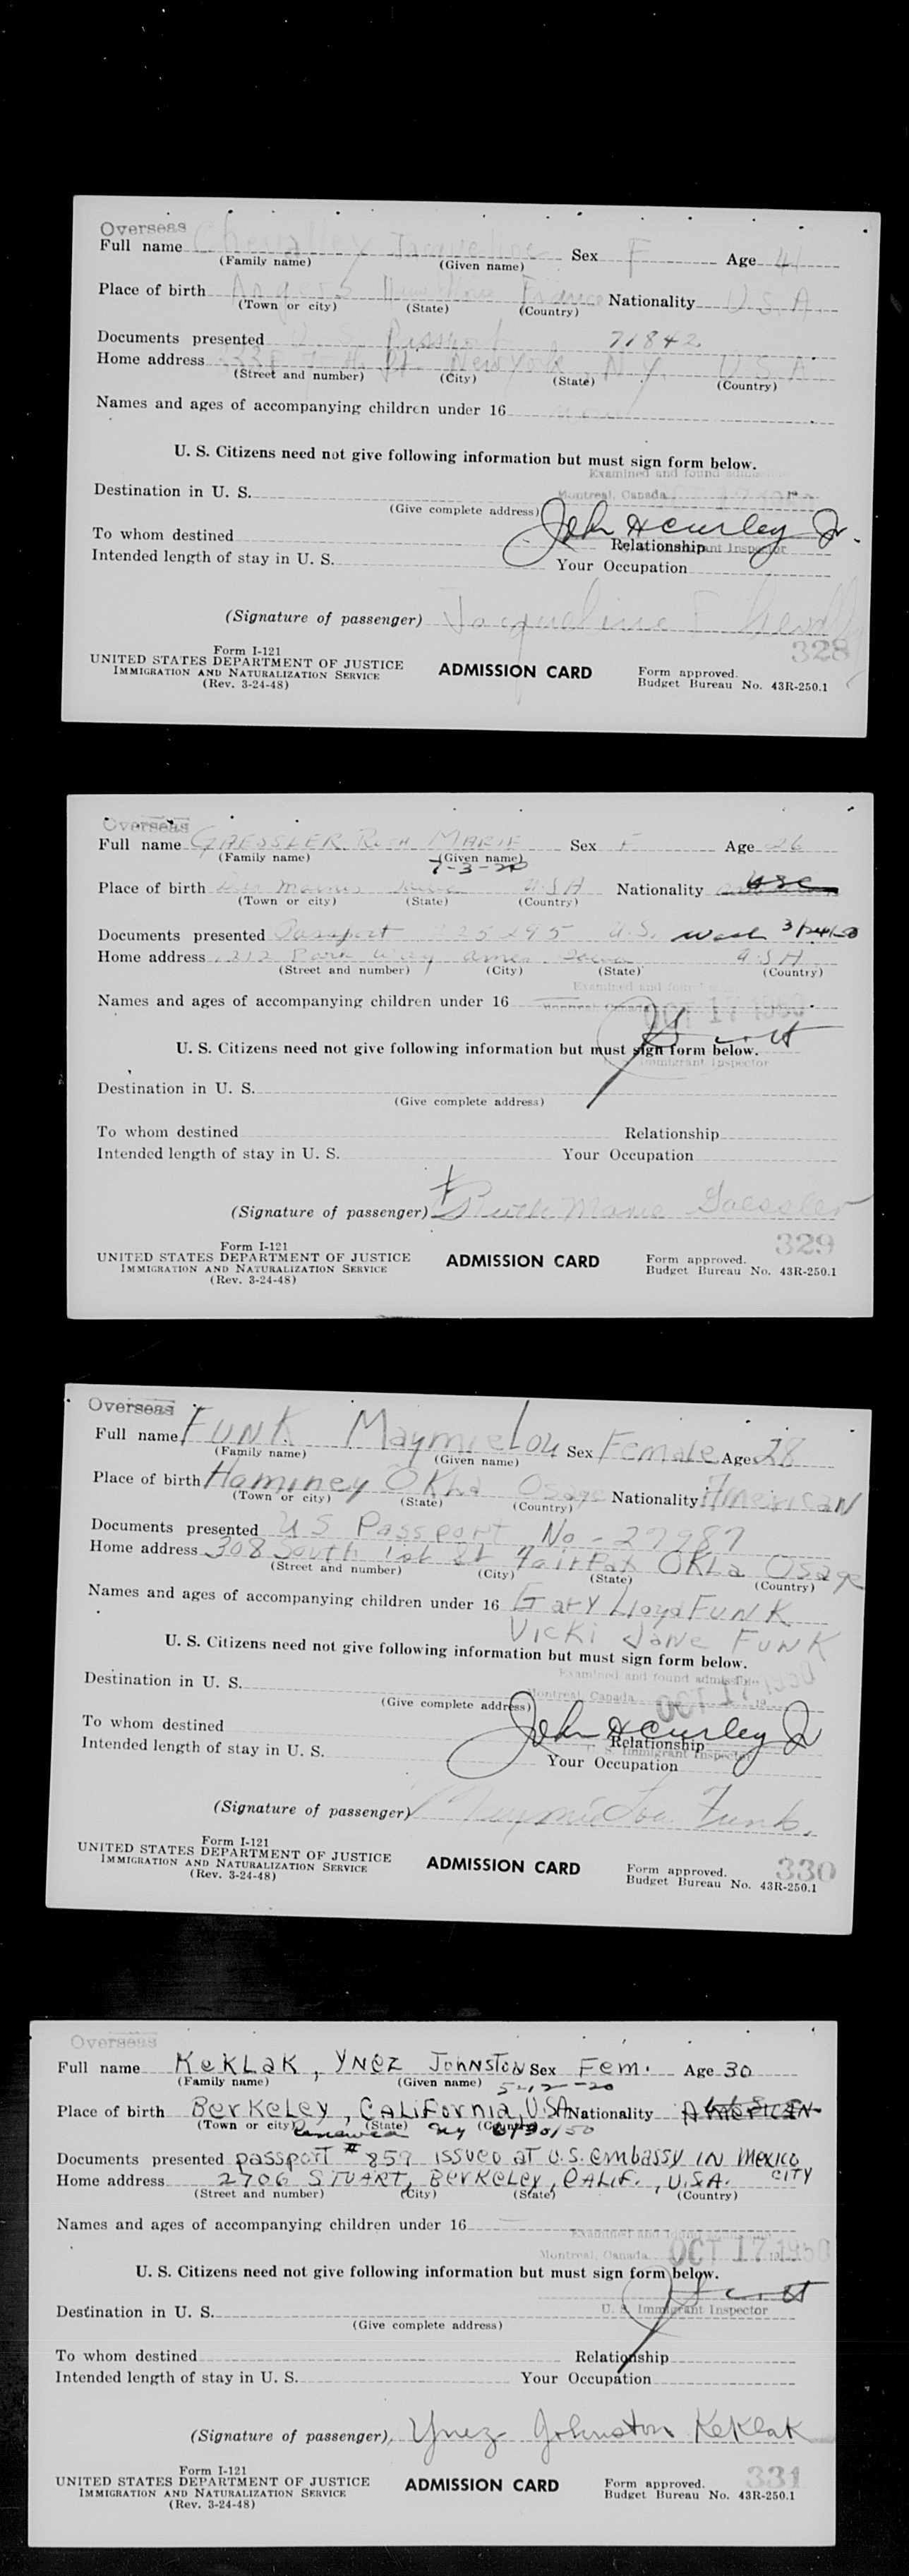 Overseas
Full name Chevalley Jacqueline Sex F Age 41
(Family name) (Given name)
Place of birth Angers France Nationality U.S.A.
(Town or city) (State) (Country)
Documents presented U.S. Passport 71842
Home address St. New York, N.Y. U.S.A.
(Street and number) (City) (State) (Country)
Names and ages of accompanying children under 16
U. S. Citizens need not give following information but must sign form below.
Examined and found
Destination in U. S. Montreal, Canada
(Give complete address) John H Curley Jr.
To whom destined Relationship
Intended length of stay in U. S. Your Occupation
(Signature of passenger) Jacqueline
328
Form I-121
UNITED STATES DEPARTMENT OF JUSTICE ADMISSION CARD Form approved.
IMMIGRATION AND NATURALIZATION SERVICE Budget Bureau No. 43R-250.1
(Rev. 3-24-48)
Overseas
Full name GAESSLER, RUTH MARIE Sex F Age 26
(Family name) (Given name)
Place of birth U.S.A Nationality
(Town or city) (State) (Country)
Documents presented Passport U.S. Wash
Home address 212 Park Way Ames Iowa U.S.A.
(Street and number) (City) (State) (Country)
Examined and found
Names and ages of accompanying children under 16
OCT 17 1950
U. S. Citizens need not give following information but must sign form below.
Immigrant Inspector
Destination in U. S.
(Give complete address)
To whom destined Relationship
Intended length of stay in U. S. Your Occupation
(Signature of passenger) Ruth Marie Gaessler
329
Form I-121
UNITED STATES DEPARTMENT OF JUSTICE ADMISSION CARD Form approved.
IMMIGRATION AND NATURALIZATION SERVICE Budget Bureau No. 43R-250.1
(Rev. 3-24-48)
Overseas
Full name FUNK MaymieLou Sex Female Age 28
(Family name) (Given name)
Place of birth Hominey OKla Osage Nationality American
(Town or city) (State) (Country)
Documents presented US Passport No - 27987
Home address 308 South 1st St OKla Osage
(Street and number) (City) (State) (Country)
Names and ages of accompanying children under 16 Gary Lloyd FUNK
Vicki Jane FUNK
U. S. Citizens need not give following information but must sign form below.
Examined and found
Destination in U. S. Montreal, Canada
(Give complete address) John H Curley Jr
To whom destined Relationship
U. S. Immigrant Inspector
Intended length of stay in U. S. Your Occupation
(Signature of passenger) Maymie Lou Funk.
330
Form I-121
UNITED STATES DEPARTMENT OF JUSTICE ADMISSION CARD Form approved.
IMMIGRATION AND NATURALIZATION SERVICE Budget Bureau No. 43R-250.1
(Rev. 3-24-48)
Overseas
Full name KeKLaK, YNez JohNSToN Sex Fem. Age 30
(Family name) (Given name) 5-12-20
Place of birth BerKeLey, CALiForNia, U.S.A Nationality AMERICAN
(Town or city) (State) (Country)
Renewed NY
Documents presented passport # 859 issued at U.S. embassy in Mexico CITY
Home address 2706 STUART, BerKeLey, CALIF., U.S.A.
(Street and number) (City) (State) (Country)
Names and ages of accompanying children under 16
Examined and found
Montreal, Canada OCT 17 1950
U. S. Citizens need not give following information but must sign form below.
Destination in U. S. U. S. Immigrant Inspector
(Give complete address)
To whom destined Relationship
Intended length of stay in U. S. Your Occupation
(Signature of passenger) Ynez Johnston Keklak
331
Form I-121
UNITED STATES DEPARTMENT OF JUSTICE ADMISSION CARD Form approved.
IMMIGRATION AND NATURALIZATION SERVICE Budget Bureau No. 43R-250.1
(Rev. 3-24-48)